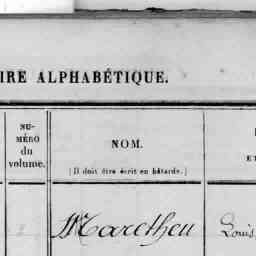 IRE ALPHABÉTIQUE.
NU-
MÉRO
du
volume.
NOM.
(Il doit être écrit en bâtarde.)
ET
Marctheu Louis